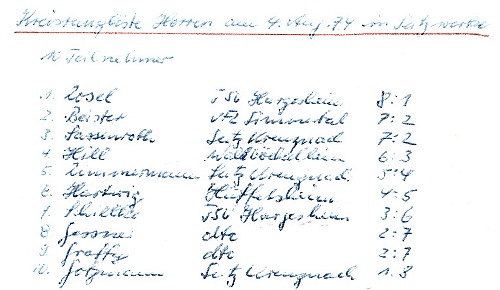 Kreisrangliste Herren am 4. Aug. 74 in Seitzwerke
10 Teilnehmer
1. Losel TSG Hargesheim 8:1
2. Beister VfL Simmertal 7:2
3. Sassenroth Seitz Kreuznach 7:2
4. Hill Waldböckelheim 6:3
5. Zimmermann Seitz Kreuznach 5:4
6. Hartwig Hüffelsheim 4:5
7. TSG Hargesheim 3:6
8 dto 2:7
9 dto 2:7
10. Seitz Kreuznach 1:8